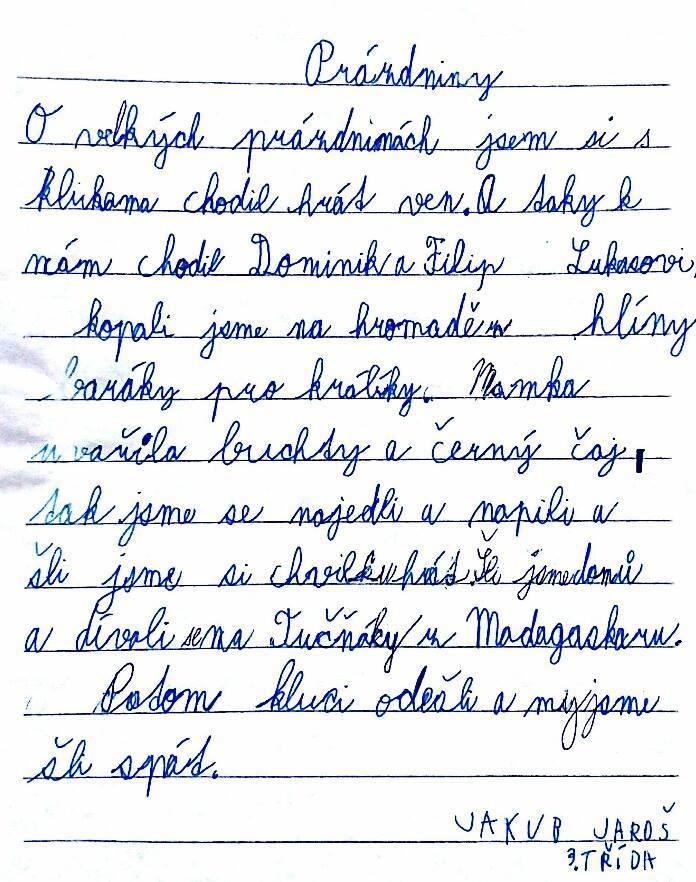 Prázdniny
O velkých prázdninách jsem si s
klukama chodil hrát ven. A taky k
nám chodil Dominik a Filip Lukasovi,
kopali jsme na hromadě z hlíny
baráky pro králíky. Mamka
uvařila buchty a černý čaj,
tak jsme se najedli a napili a
šli jsme si chvilku hrát. Šli jsme domů
a dívali se na Tučňáky z Madagaskaru.
Potom kluci odešli a my jsme
šli spát.
JAKUB JAROŠ
3. TŘÍDA